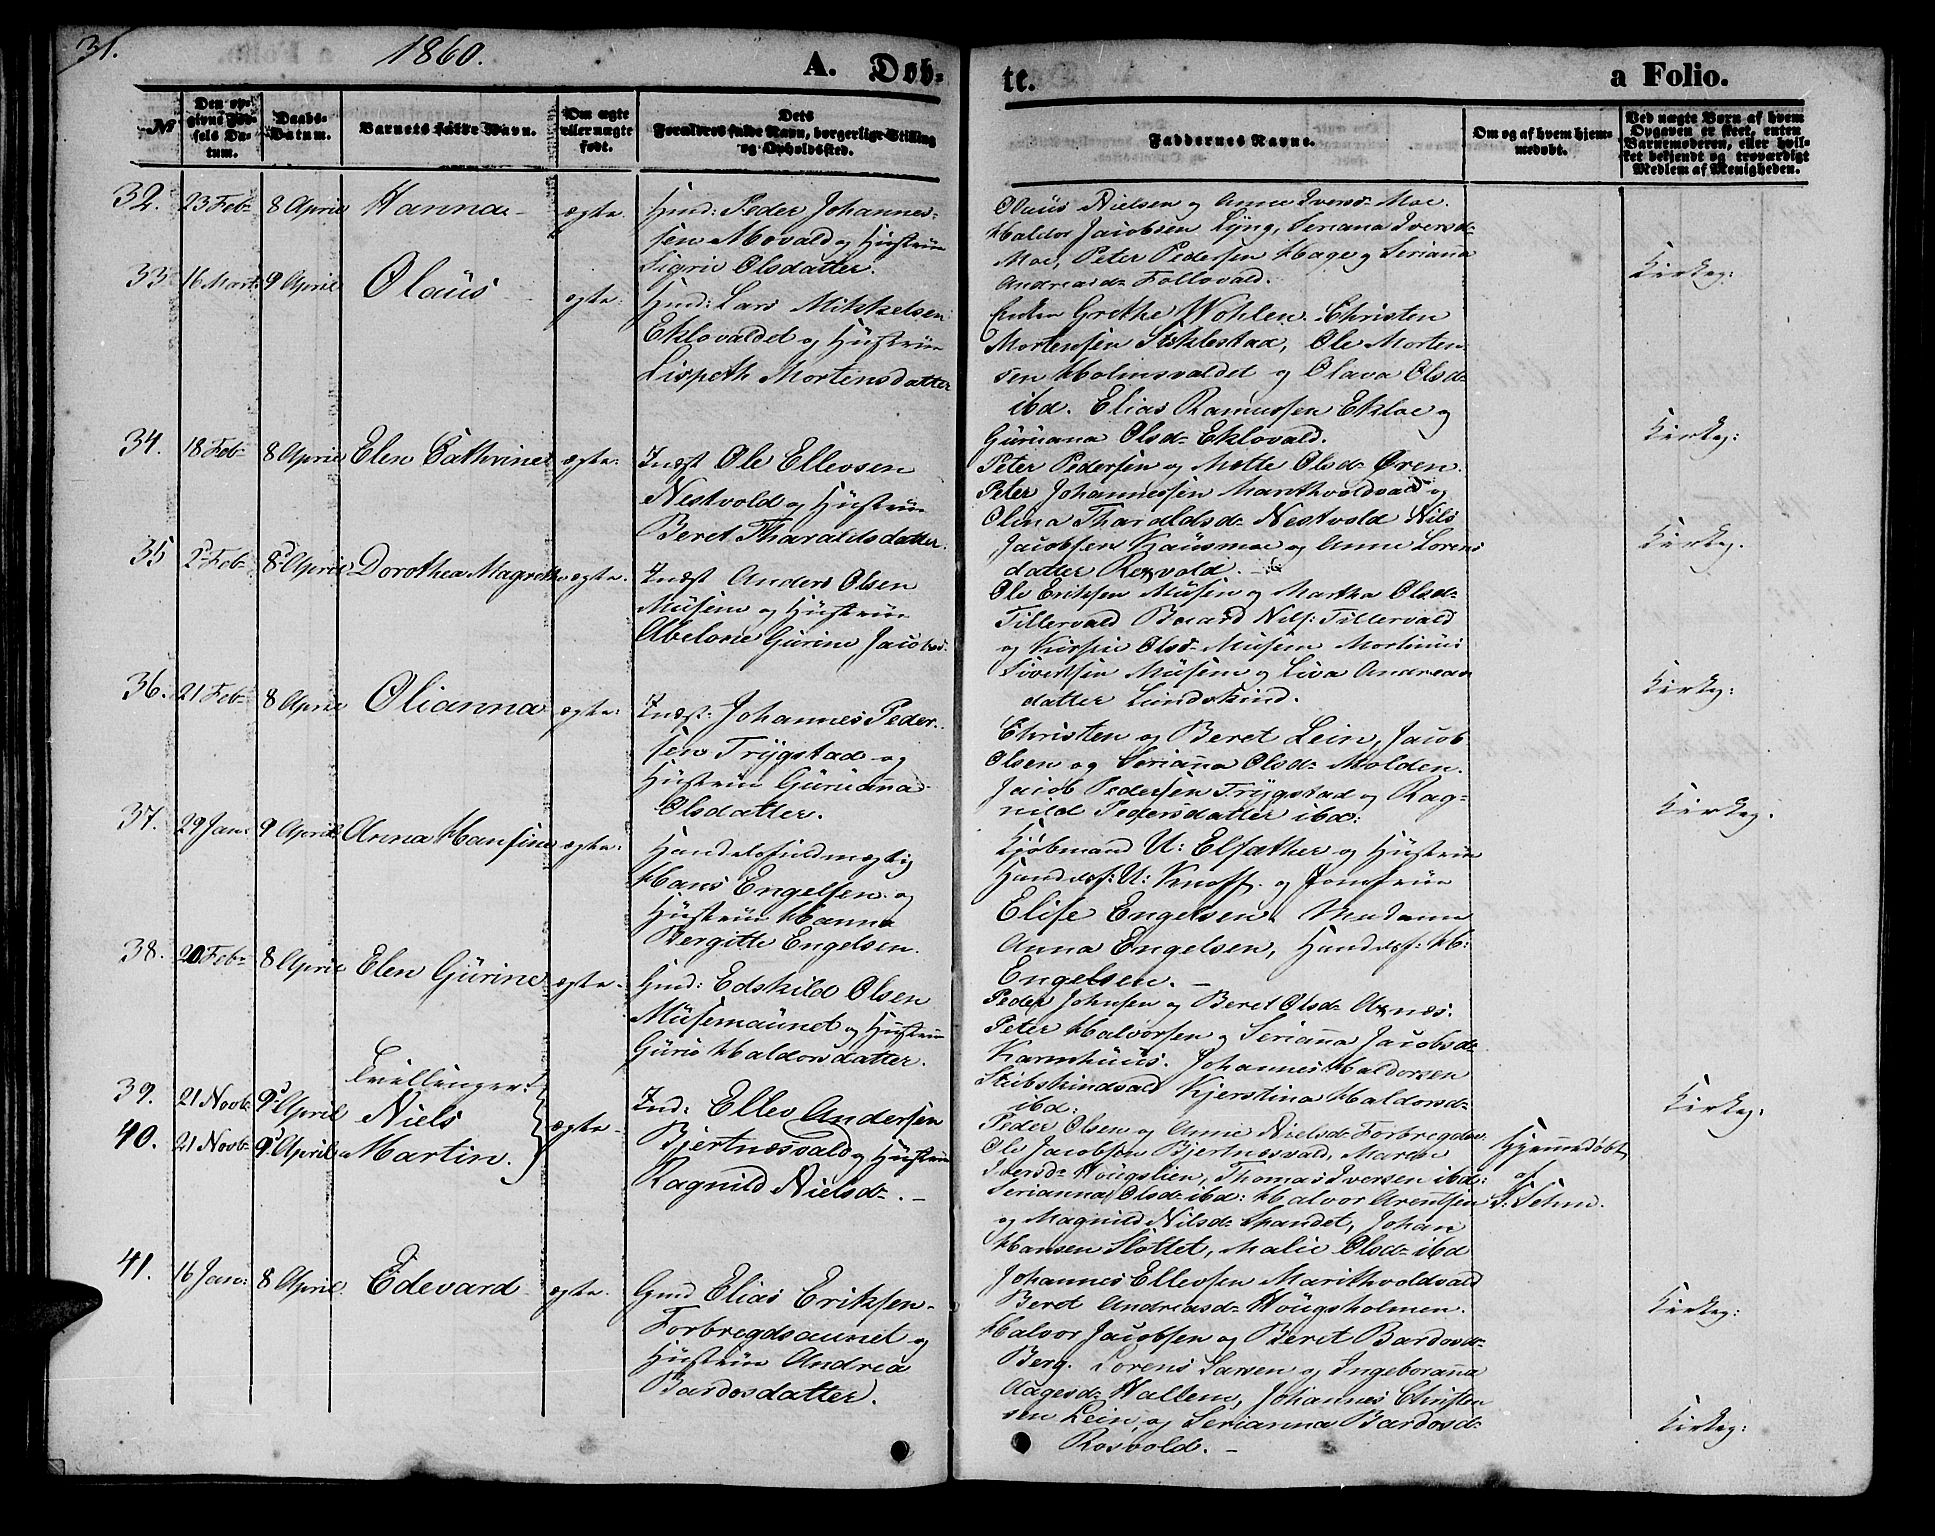 31.
1860.
A. Døb-
te.
a Folio.
№
Den op-
givne Fød-
sels Da-
tum.
Daabs-
Datum.
Barnets fulde Navn.
Om ægte
eller uægte
født.
Dets
Forældres fulde Navn, borgerlige Stilling
og Opholdssted.
Faddernes Navne.
Om og af hvem hjem-
medøbt.
Ved uægte Børn af hvem
Opgaven er skeet, enten
Barnemoderen, eller hvil-
ket bekjendt og troværdigt
Medlem af Menigheden.
32. 23 Feb. 8 April Hanna ægte. Hmd: Peder Johannes-
sen Movald og Hustrue
Sigrie Olsdatter.
Olaüs Nielsen og Anne Iversd. Moe.
Haldor Jacobsen Lyng, Seriana Iversd.
Moe, Peter Pedersen Hage og Seriana
Andreasd. Follovald.
33 16 Mart. 9 April Olaüs ægte. Hmd: Lars Mikkelsen
Eklovaldet og Hüstrüe
Lispeth Mortensdatter
Enken Grethe Wohlen. Christen
Mortensen Stiklestad, Ole Morten-
sen Holmsvaldet og Olava Olsd.
ibd. Elias Rasmussen Ekloe og
Gürüana Olsd. Eklovald.
Kirkeg:
34. 18 Feb. 8 April Elen Cathrine ægte. Indst Ole Ellevsen
Nestvold og Hüstrüe
Beret Tharaldsdatter.
Peter Pedersen og Mette Olsd. Øren.
Peter Johannessen Marithvoldvald og
Olina Tharaldsd. Nestvold Nils
Jacobsen Kaüsmoe og Anne Lorens
datter Rosvold.
Kirkeg:
35 2 Feb. 8 April Dorothea Magrethe ægte. Indst Anders Olsen
Müsem og Hüstrüe
Abelone Gürine Jacobsd.
Ole Eriksen Müsem og Martha Olsd.
Tillervald Baard Nils: Tillervald
og Kirstie Olsd. Müsem Mortinus
Sivertsen Müsem og Liva Andreas
datter Lundskind.
Kirkeg.
36. 21 Feb. 8 April Olianna ægte. Indst: Johannes Peder-
sen Trÿgstad og
Hüstrüe Gürüanna
Olsdatter.
Christen og Beret Lein, Jacob
Olsen og Serianna Olsd. Molden.
Jacob Pedersen Trÿgstad og Rag-
nild Pedersdatter ibd:
Kirkeg:
37. 29 Jan: 9 April Anna Hansine ægte. Handelsfuldmægtig
Hans Engelsen og
Hüstrüe Hanna
Bergitte Engelsen.
Kjøbmand U: Elsæther og Hüstrüe
Handelsf: U: Knoff. og Jomfrüe
Elise Engelsen, Madame
Anna Engelsen, Handelsf: H:
Engelsen.
Kirkeg.
38. 20 Feb. 8 April Elen Gürine ægte. Hmd: Edskild Olsen
Müsemaünet og Hüstrüe
Gürie Haldorsdatter.
Peder Johnsen og Beret Olsd. Aksnes.
Peter Halvorsen og Serianna Jacobsd.
Karmhüüs. Johannes Haldorsen
Stubskindvald Kjerstina Haldorsd.
ibd:
Tvillinger:
39. 21 Novb. 9 April Niels
40. 21 Novb. 9 April Martin. ægte. Ind: Ellev Andersen
Bjertnesvald og Hüstrüe
Ragnild Nielsd.
Peder Olsen og Anne Nielsd. Forbregdsv.
Ole Jacobsen Bjertnesvald, Maren
Iversd. Houghslien, Thomas Iversen ibd:
Serianna Olsd. ibd: Halvor Arentsen
og Magnild Nilsd. Spandet, Johan
Hansen Slottet, Malie Olsd. ibd
Hjemmedøbt
af
Kirkeg:
41. 16 Jan: 8 April Edevard ægte. Gmd Elias Eriksen
Forbregdsaunet og
Hüstrüe Andrea
Bardosdatter.
Johannes Ellevsen Marithvoldvald
Beret Andreasd. Hougsholmen.
Halvor Jacobsen og Beret Bardosd.
Berg. Lorens Larsen og Ingeboranna
Aagesd. Hallem, Johannes Christen
sen Lein, og Serianna Bardosd.
Rosvold.
Kirkeg:
Kirkeg: